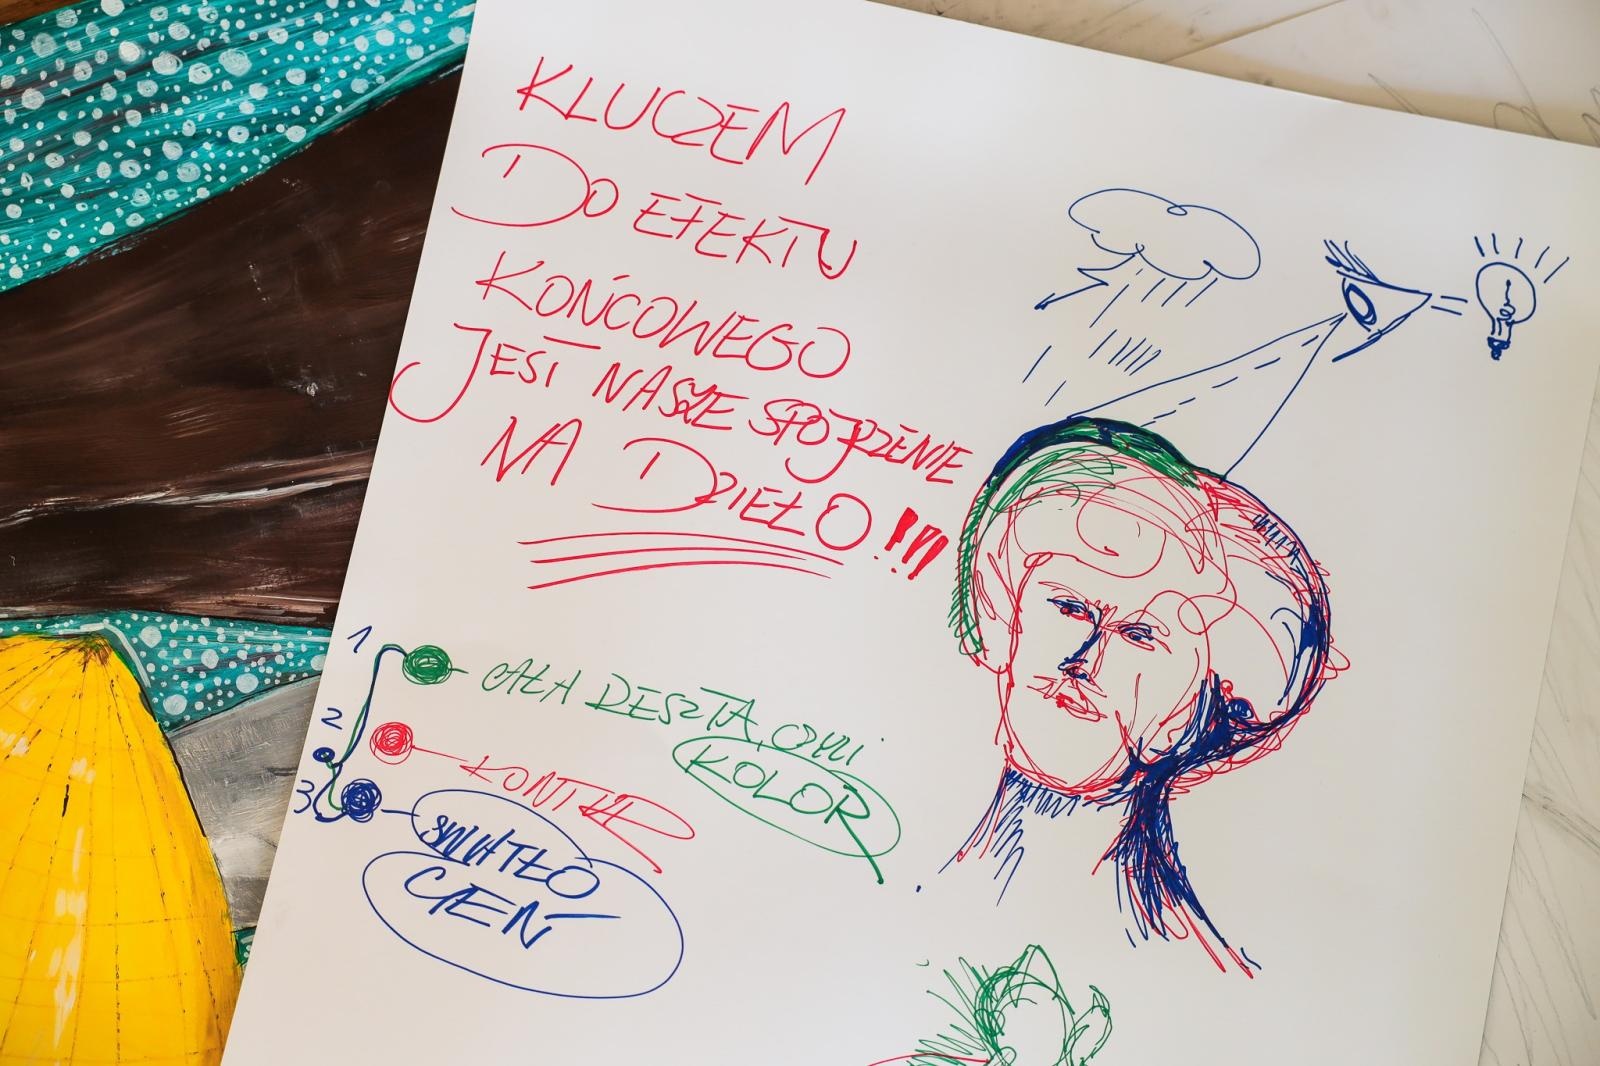 KLUCZEM
DO EFEKTU
KOŃCOWEGO
JEST NASZE SPOJRZENIE
NA DZIEŁO!!!
1
CAŁA RESZTA, CZYLI
KOLOR
2
KONTUR
3
ŚWIATŁO
CIEŃ